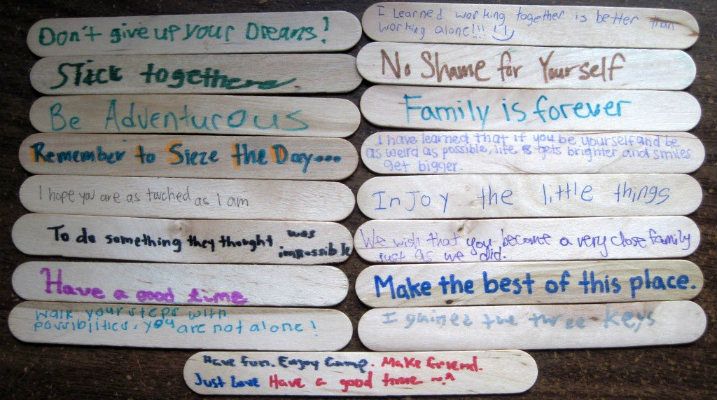 Don't give up your Dreams!
Stick together
Be Adventurous
Remember to Sieze the Day...
I hope you are as touched as I am
To do something they thought was
impossible
Have a good time
Walk your steps with
possibilities, you are not alone!
I Learned working together is better than
working alone!!!
No Shame for Yourself
Family is forever
I have learned that if you be yourself and be
as weird as possible, life gets brighter and smiles
get bigger.
Injoy the little things
We wish that you become a very close family
just as we did.
Make the best of this place.
I gained the three keys
Have fun. Enjoy Camp. Make friend.
Just Love Have a good time